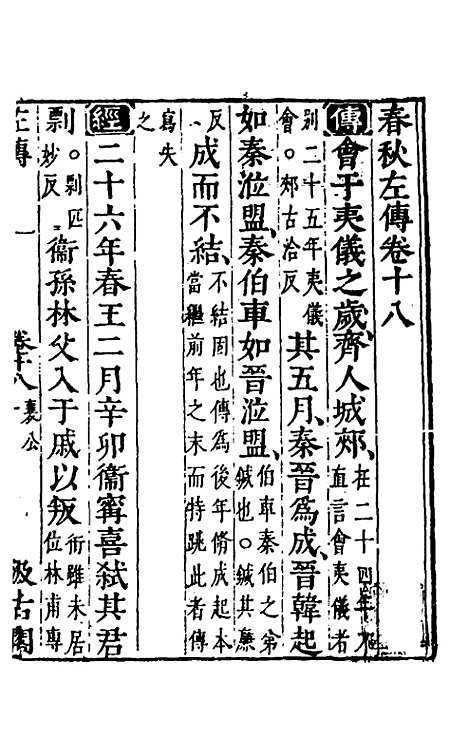 春秋左傳卷十八
傳會于夷儀之歲、齊人城郟、在二十四年不直言會夷儀者
別二十五年夷儀會○郟古洽反其五月、秦晉爲成、晉韓起
如秦涖盟、秦伯車如晉涖盟、伯車秦伯之弟鍼也○鍼其廉
反、成而不結、不結固也傳爲後年脩成起本當繼前年之末而特跳此者傳
寫失之
經二十六年春王二月辛卯衞甯喜弑其君
剽○剽匹妙反衞孫林父入于戚以叛衎雖未居位林甫專
左傳 一 卷十八 襄公 汲古閣